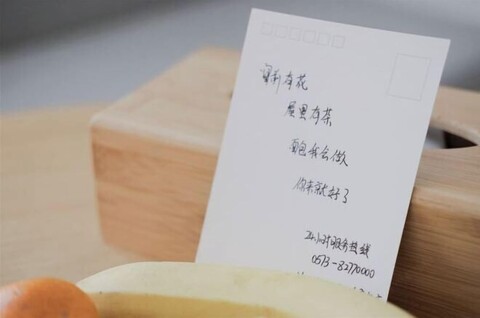 窗前有花
屋里有茶
面包我会做
你来就好了
24小时服务热线
0573-82770000